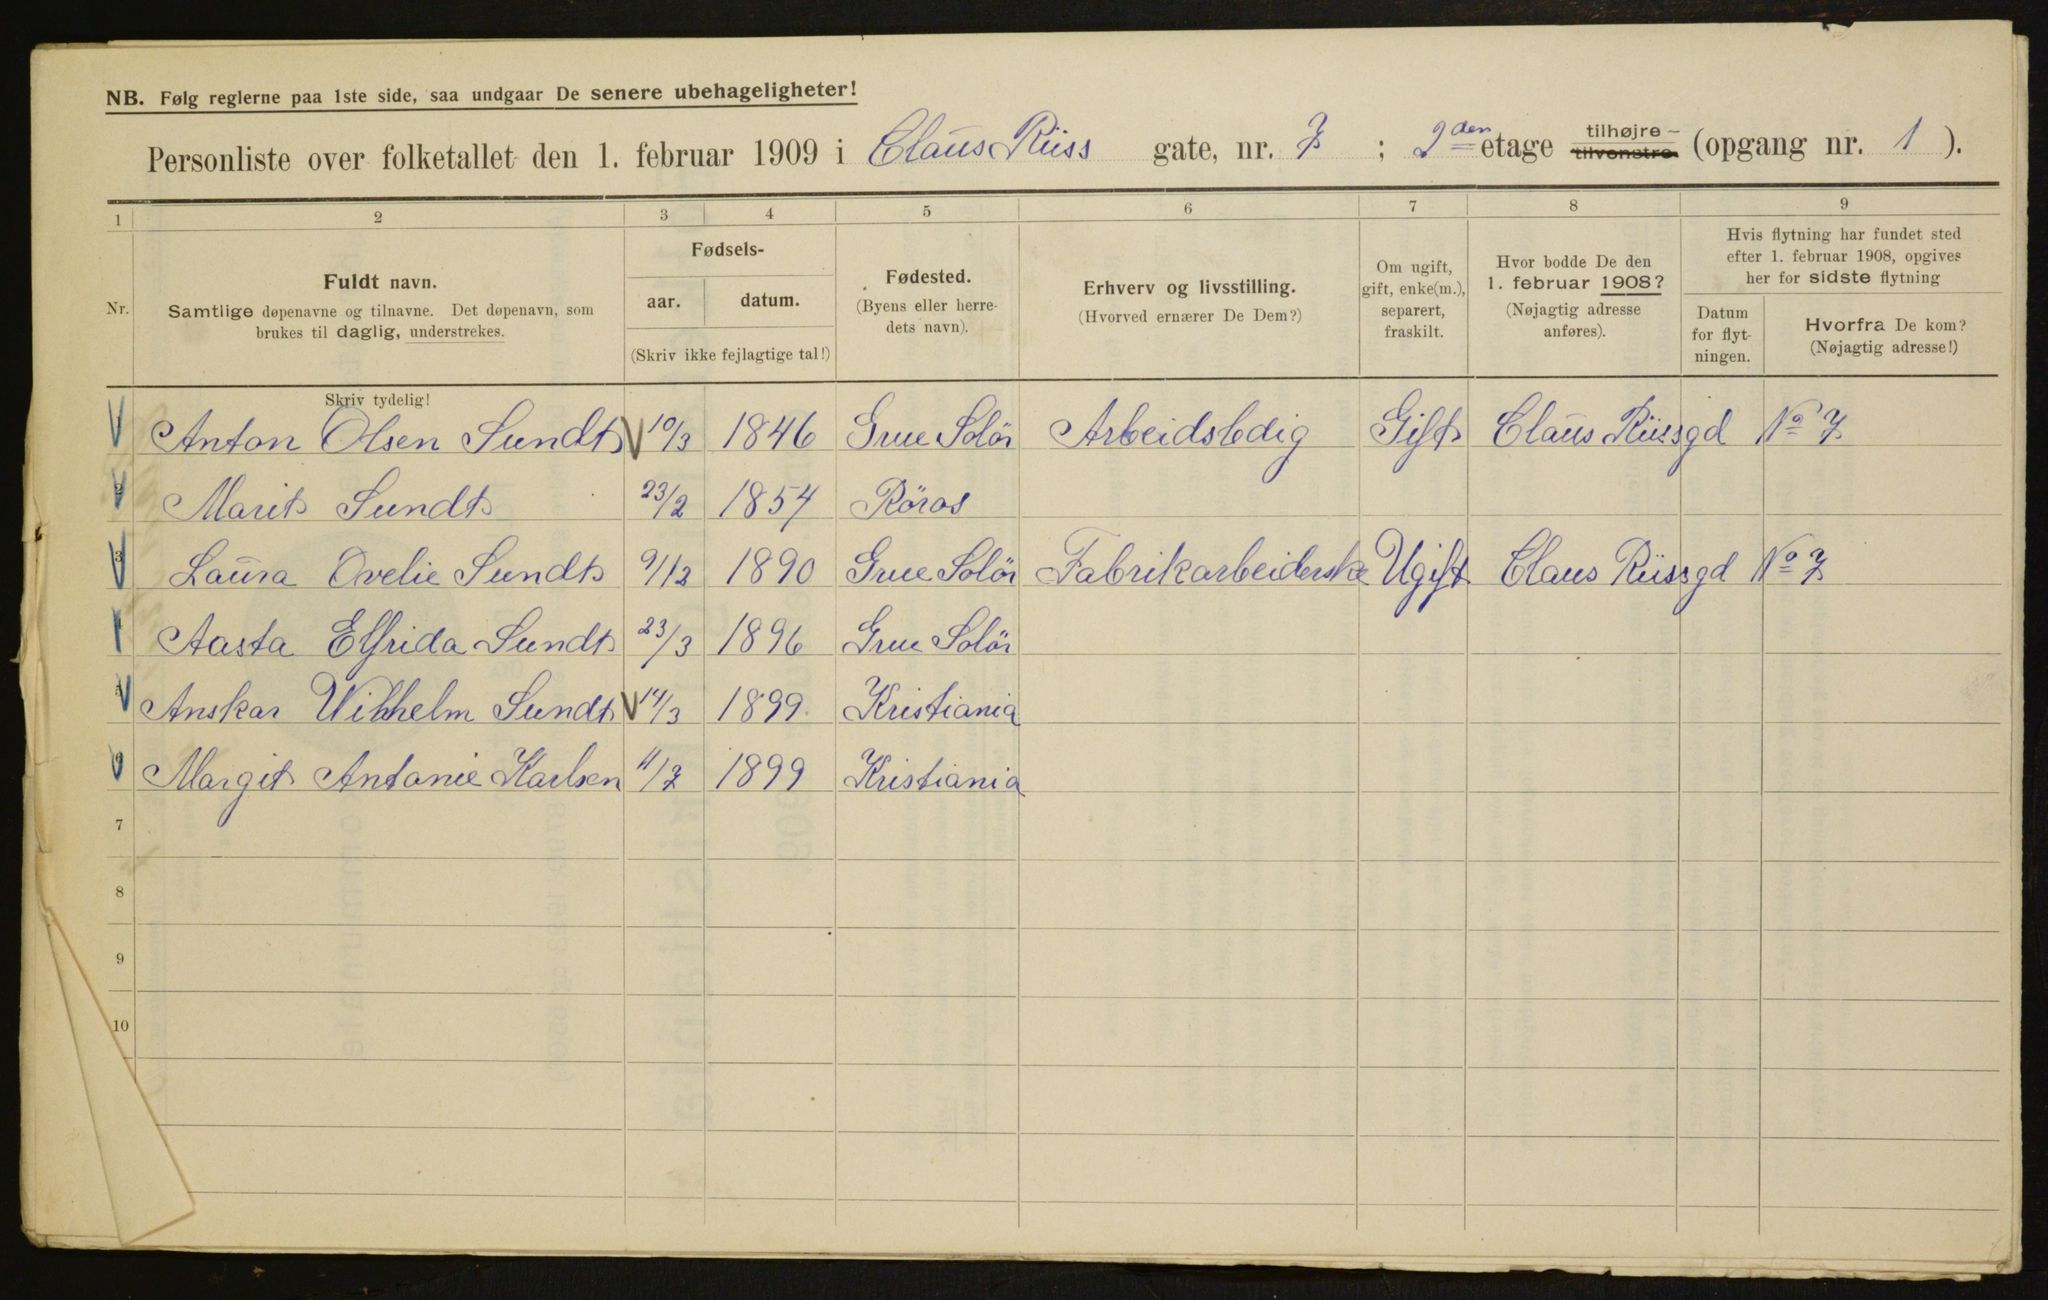 NB. Følg reglerne paa 1ste side, saa undgaar De senere ubehageligheter!
Personliste over folketallet den 1. februar 1909 i Claus Riiss gate, nr. 7 ; 2den etage tilhøjre tilvenstre (opgang nr. 1 ).
1 2 3 4 5 6 7 8 9
Nr.
Fuldt navn.
Samtlige døpenavne og tilnavne. Det døpenavn, som
brukes til daglig, understrekes.
Fødsels-
aar. datum.
(Skriv ikke fejlagtige tal!)
Fødested.
(Byens eller herre-
dets navn).
Erhverv og livsstilling.
(Hvorved ernærer De Dem?)
Om ugift,
gift, enke(m.),
separert,
fraskilt.
Hvor bodde De den
1. februar 1908?
(Nøjagtig adresse
anføres).
Hvis flytning har fundet sted
efter 1. februar 1908, opgives
her for sidste flytning
Datum
for flyt-
ningen.
Hvorfra De kom?
(Nøjagtig adresse!)
Skriv tydelig!
1 Anton Olsen Sundt 10/3 1846 Grue Solör Arbeidsledig Gift Claus Riissgd No 7
2 Marit Sundt 23/2 1854 Röros
3 Laura Ovelie Sundt 9/12 1890 Grue Solör Fabrikarbeiderske Ugift Claus Riissgd No 7
4 Aasta Elfrida Sundt 23/3 1896 Grue Solör
5 Anskar Wilhelm Sundt 14/3 1899 Kristiania
6 Margit Antonie Karlsen 11/7 1899 Kristiania
7
8
9
10